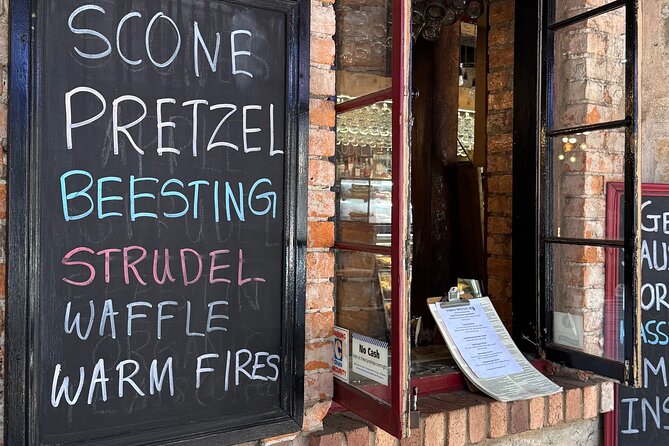 SCONE
PRETZEL
BEESTING
STRUDEL
WAFFLE
WARM FIRES
No Cash
GE
AUS
OR
ASS
M
INS